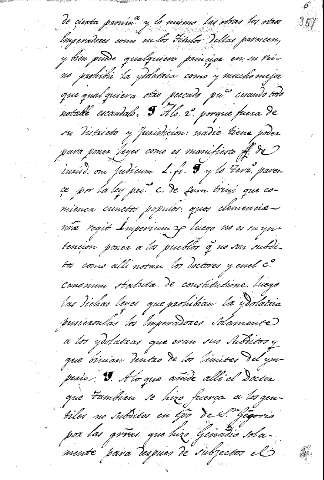 6
357
de cierta provin.ª y lo mismo las otras los otros
Emperadores como en los titulos dellas parecen,
y bien pudo qualquiera principe en su rei-
no prohibir la ydolatria como y mucho mejor
que qualquiera otro pecado pu.co quando otro
notable escandalo. A lo 2.º porque fuera de
su districto y Jurisdicion nadie tiene poder
para poner leyes como es manifiesto ff. de
jurisd. om. judicum l. fi. y lo terc.º pare-
ce por la ley pri.ª C. de sum. trini. que co-
mienza cunctos populos, quos clementiæ
nræ regit Imperium y luego no es su yn-
tencion poner a los pueblos q no son subdi-
tos como alli notan los doctores y en el c.º
canonum statuta de constitutione luego
las dichas leyes que prohibian la ydolatria
pusieronlas los Emperadores solamente
a los ydolatras que eran sus subditos y
que vivian dentro de los limites del ym-
perio. A lo que añade alli el Doctor
que tambien se hizo fuerça a los gen-
tiles no subditos en tpo de S.n Gregorio
por las guerras que hizo Genadio sola-
mente para despues de subjectos el